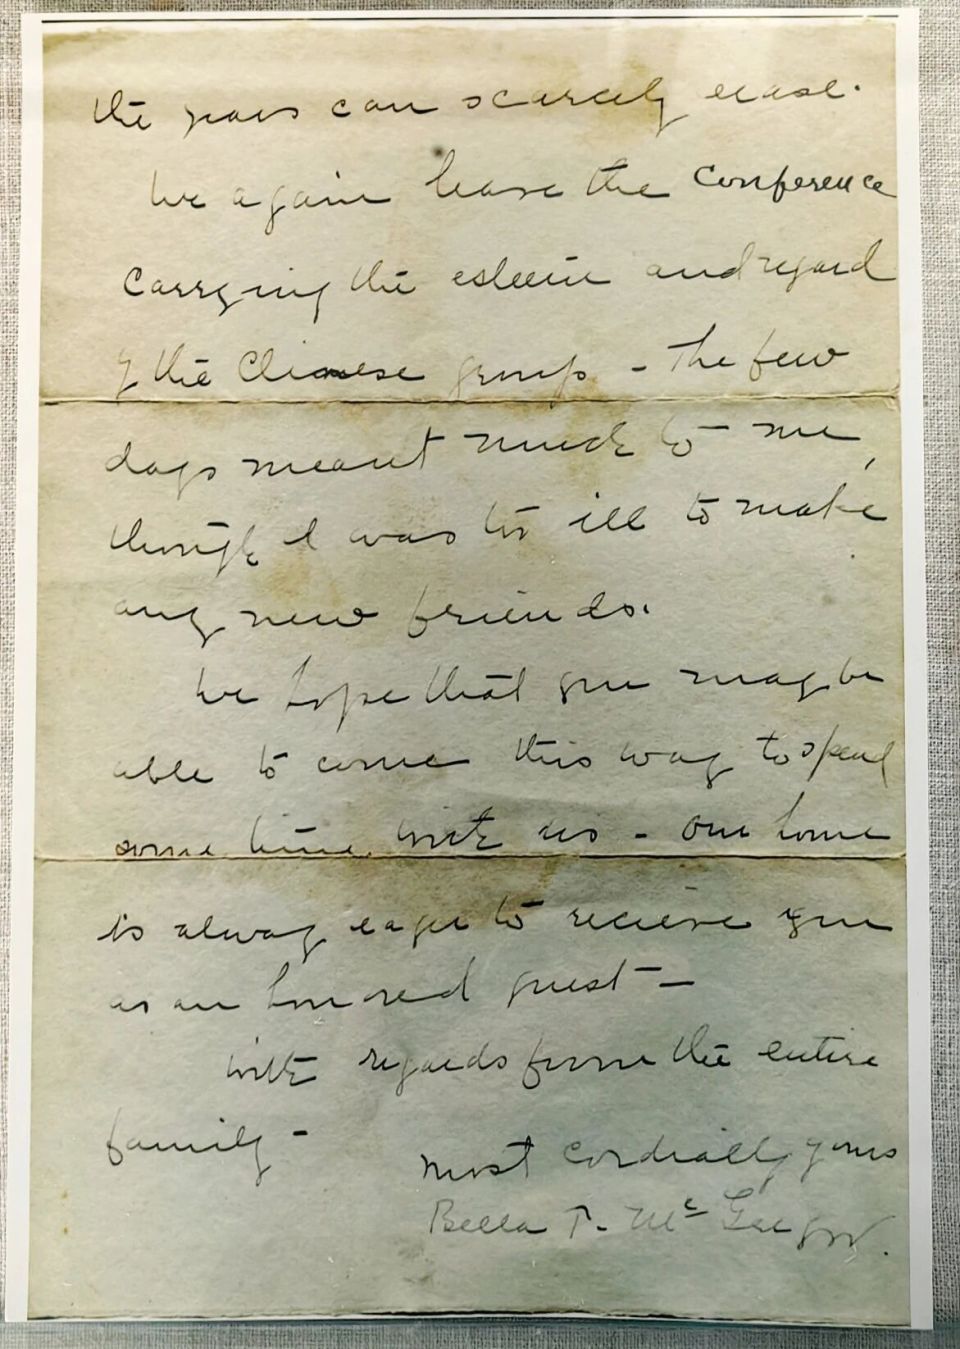 the years can scarcely erase.
We again leave the Conference
Carrying the esteem and regard
of the Chinese group - The few
days meant much to me,
though I was too ill to make
any new friends.
We hope that you may be
able to come this way to spend
some time with us - Our home
is alway eager to recieve you
as an honored guest -
With regards from the entire
family -
Most cordially yours
Bella P. McGregor.